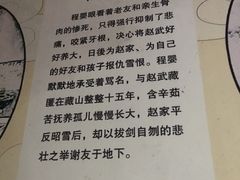 程婴眼看着老友和亲生骨
肉的惨死，只得强行抑制了悲
痛，咬紧牙根，决心将赵武好
好养大，日後为赵家、为自己
的好友和孩子报仇雪恨。程婴
默默地承受着骂名，与赵武藏
匿在藏山整整十五年，含辛茹
苦抚养孤儿慢慢长大，赵家平
反昭雪后，却以拔剑自刎的悲
壮之举谢友于地下。